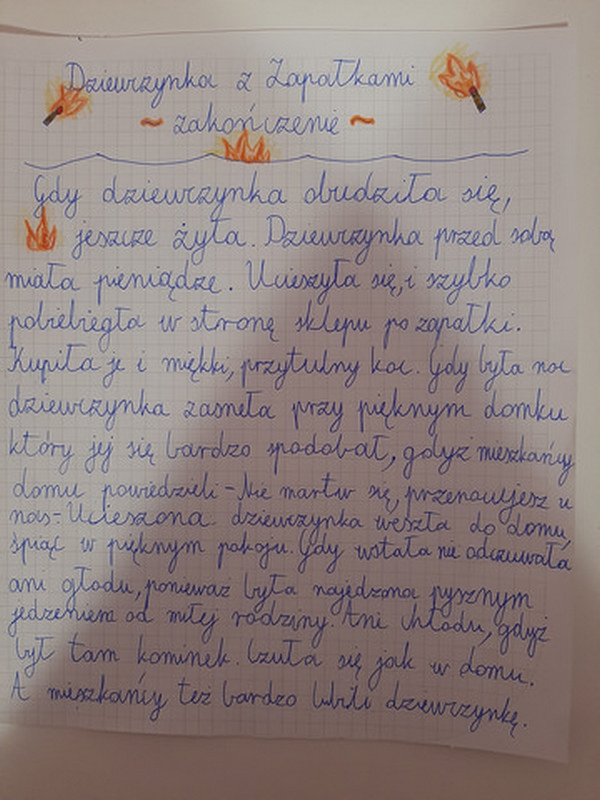 Dziewczynka z Zapałkami
~ zakończenie ~
Gdy dziewczynka obudziła się,
jeszcze żyła. Dziewczynka przed sobą
miała pieniądze. Ucieszyła się, i szybko
pobiebiegła w stronę sklepu po zapałki.
Kupiła je i miękki, przytulny koc. Gdy była noc
dziewczynka zasneła przy pięknym domku
który jej się bardzo spodobał, gdyż mieszkańcy
domu powiedzieli - Nie martw się, przenocujesz u
nas - Ucieszona dziewczynka weszła do domu,
śpiąc w pięknym pokoju. Gdy wstała nie odczuwała
ani głodu, ponieważ była najedzona pysznym
jedzeniem od miłej rodziny. Ani chłodu, gdyż
był tam kominek. Czuła się jak w domu.
A mieszkańcy też bardzo lubili dziewczynkę.